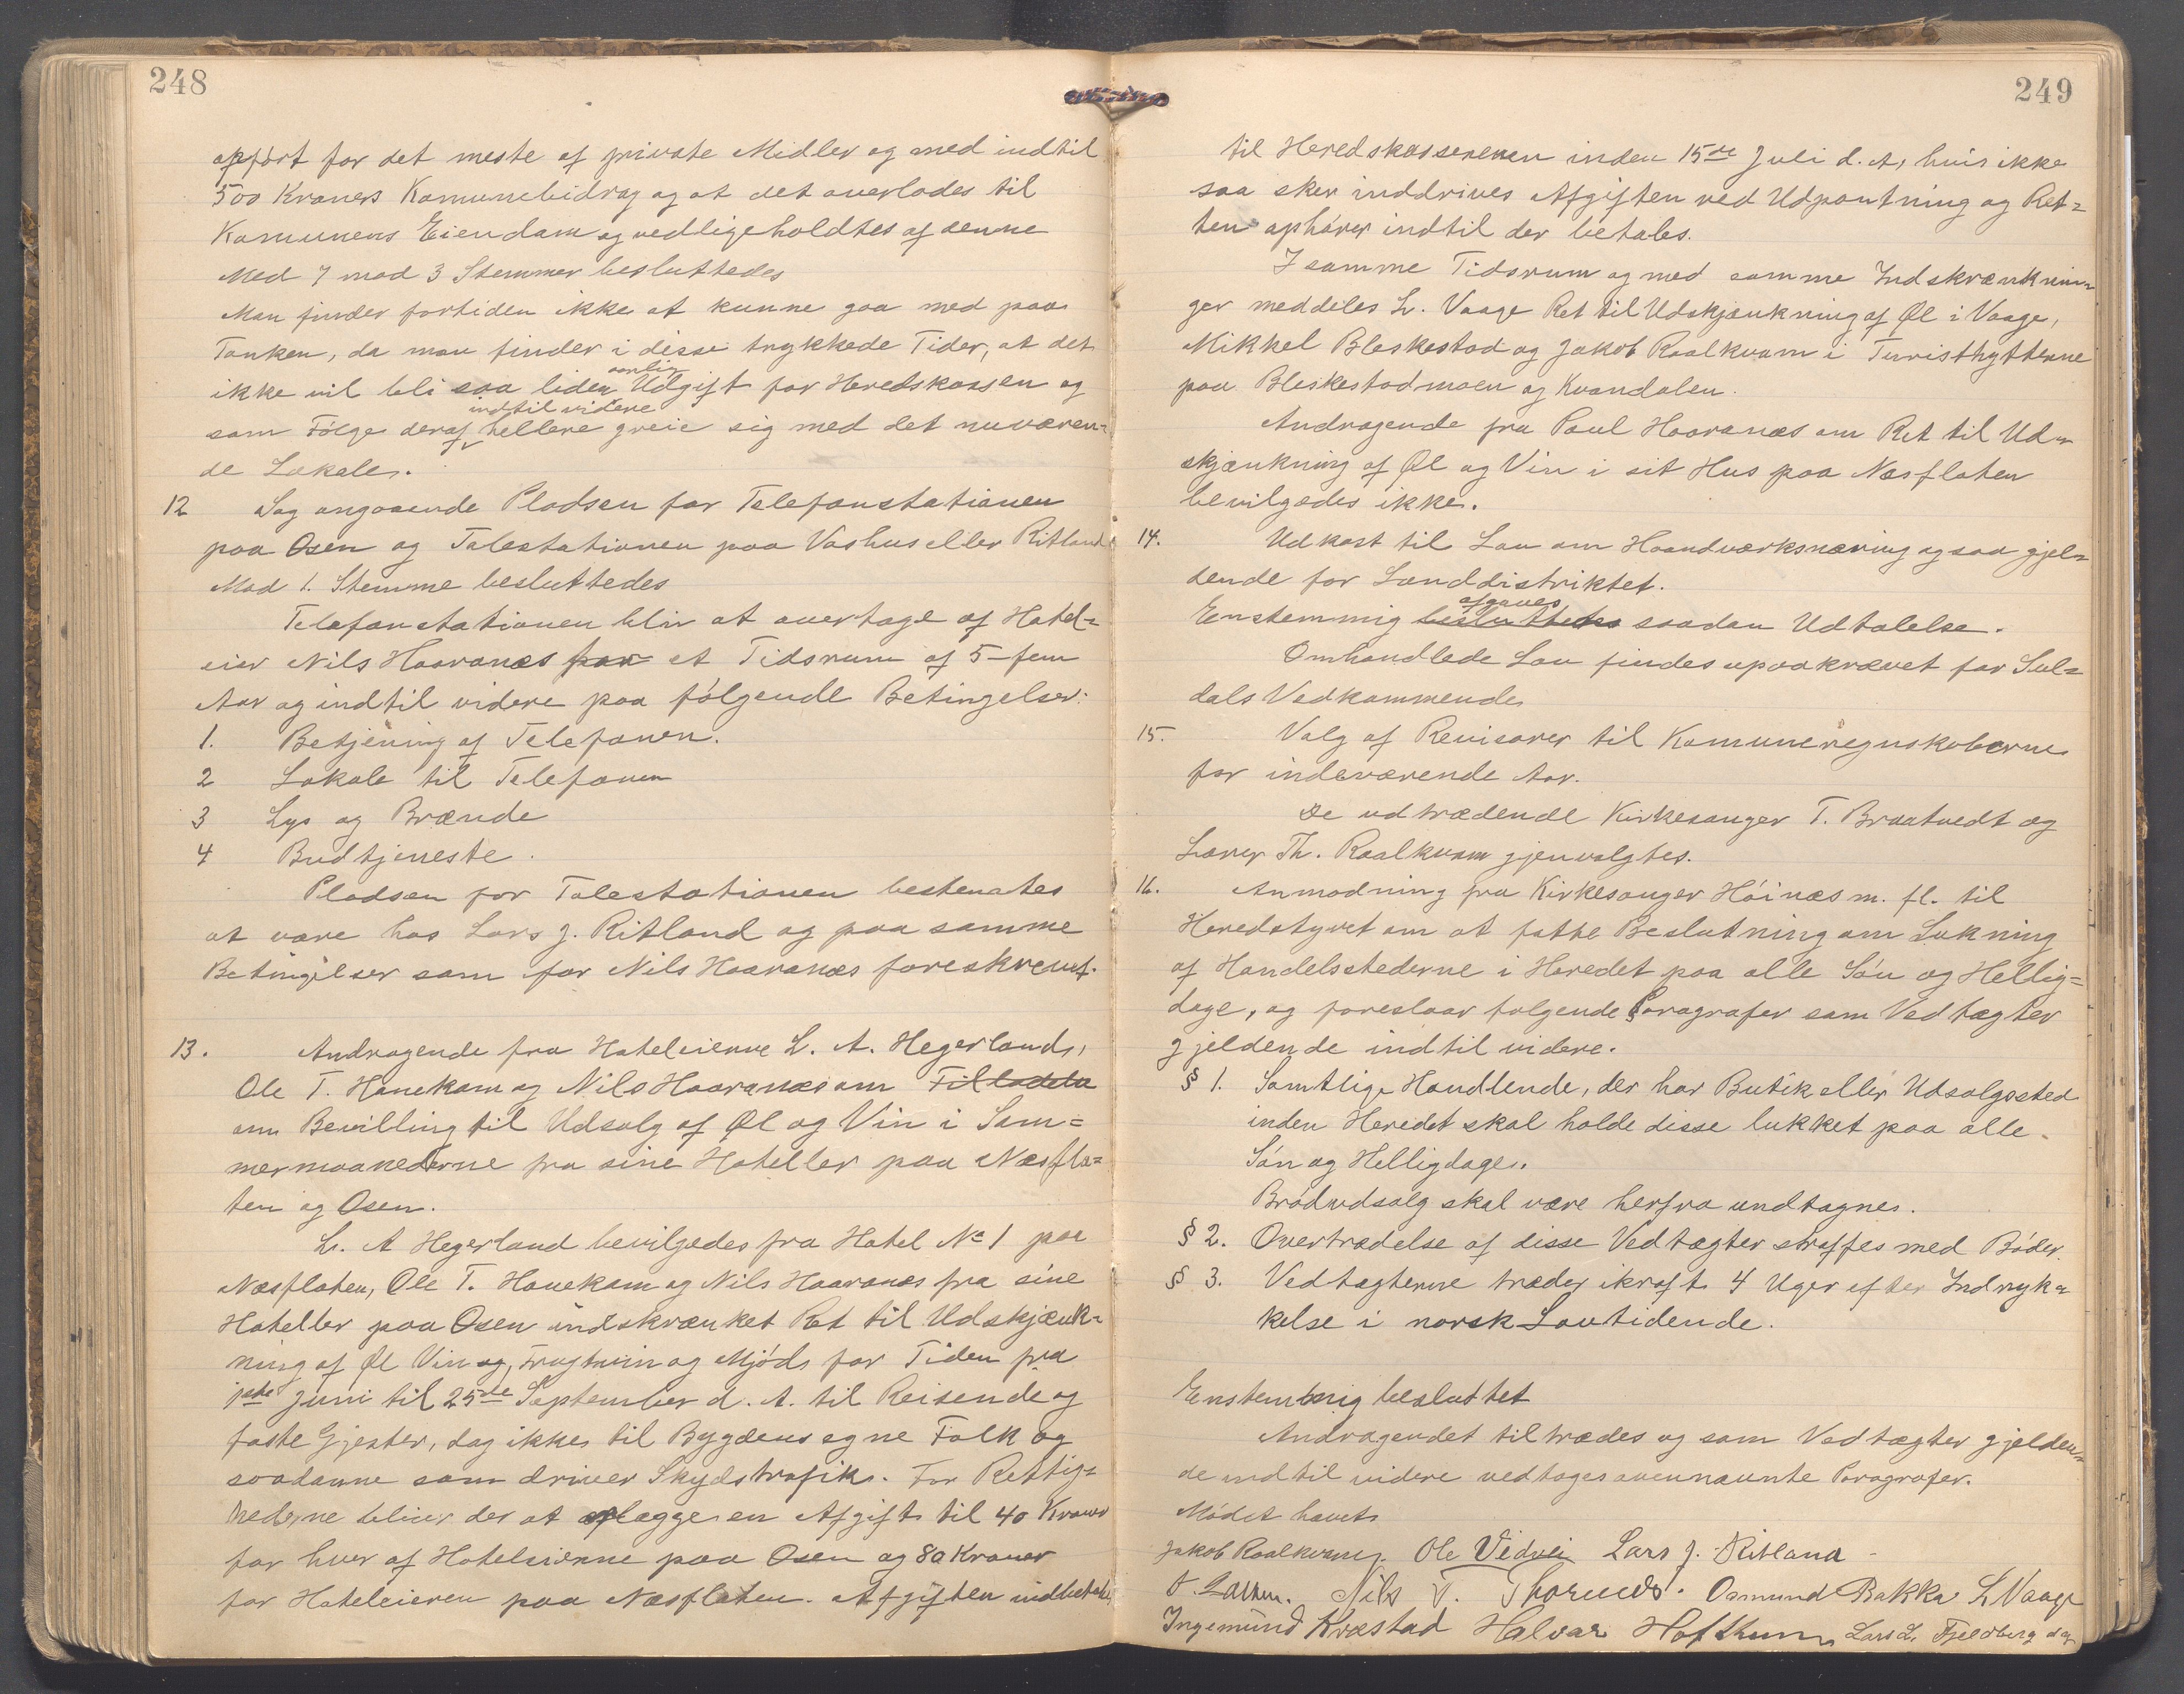 248
opført for det meste af private Midler og med indtil
500 Kroners Komunebidrag og at det overlodes til
Komunens Eiendom og vedligeholdtes af denne
Med 7 mod 3 Stemmer besluttedes
Man finder fortiden ikke at kunne gaa med paa
Tanken, da man finder i disse trykkede Tider, at det
ikke vil bli saa liden aarlig Udgift for Heredskassen og
som Følge deraf indtil videre hellere greie sig med det nuværen=
de Lokale.
12 Sag angaaende Pladsen for Telefonstationen
paa Osen og Talestationen paa Vashus eller Ritland
Mod 1. Stemme besluttedes
Telefonstationen blir at overtage af Hotel=
eier Nils Haaranæs for et Tidsrum af 5 – fem
Aar og indtil videre paa følgende Betingelser:
1. Betjening af Telefonen.
2 Lokale til Telefonen
3 Lys og Brænde
4 Budtjeneste.
Pladsen for Talestationen bestemtes
at være hos Lars J. Ritland og paa samme
Betingelser som for Nils Haaranæs foreskrevet.
13. Andragende fra Hoteleierne L. A. Hegerland,
Ole T. Hanekam og Nils Haaranæs om Tilladelse
om Bevilling til Udsalg af Øl og Vin i Som=
mermaanederne fra sine Hoteller paa Næsfla=
ten og Osen.
L. A Hegerland bevilgedes fra Hotel No 1 paa
Næsflaten, Ole T. Hanekam og Nils Haaranæs fra sine
Hoteller paa Osen indskrænket Ret til Udskjænk=
ning af Øl Vin og, Frugtvin og Mjød for Tiden fra
1ste Juni til 25de September d. A. til Reisende og
faste Gjester, dog ikke til Bygdens egne Folk og
saadanne som driver Skydstrafik. For Rettig=
hederne bliver der at erlægge en Afgift til 40 Kroner
for hver af Hoteleierne paa Osen og 80 Kroner
for Hoteleieren paa Næsflaten. Afgiften indbetales
249
til Heredskassereren inden 15de Juli d. A, hvis ikke
saa sker inddrives Afgiften ved Udpantning og Ret=
ten ophører indtil der betales.
I samme Tidsrum og med samme Indskrænknin=
ger meddeles L. Vaage Ret til Udskjænkning af Øl i Vaage,
Mikkel Bleskestad og Jakob Roalkvam i Turisthytterne
paa Bleskestadmoen og Kvandalen.
Andragende fra Paul Haaranæs om Ret til Ud=
skjænkning af Øl og Vin i sit Hus paa Næsflaten
bevilgedes ikke.
14. Udkast til Lov om Haandværksnæring ogsaa gjel=
dende for Landdistriktet.
Enstemmig besluttedes afgaves saadan Udtalelse.
Omhandlede Lov findes upaakrævet for Sul=
dals Vedkommende
15. Valg af Revisorer til Komuneregnskaberne
for indeværende Aar.
De udtrædende Kirkesanger T. Braatvedt og
Lærer Th. Roalkvam gjenvalgtes.
16. Anmodning fra Kirkesanger Høinæs m. fl. til
Heredstyret om at fatte Beslutning om Lukning
af Handelsstederne i Heredet paa alle Søn og Hellig=
dage, og foreslaar følgende Paragrafer som Vedtægter
gjeldende indtil videre.
§ 1. Samtlige Handlende, der har Butik eller Udsalgssted
inden Heredet skal holde disse lukket paa alle
Søn og Helligdage.
Brødudsalg skal være herfra undtagne.
§ 2. Overtrædelse af disse Vedtægter straffes med Bøder.
§ 3. Vedtægterne træder ikraft 4 Uger efter Indryk=
kelse i norsk Lovtidende.
Enstemmig besluttet
Andragendet tiltrædes og som Vedtægter gjelden=
de indtil videre vedtages ovennævnte Paragrafer.
Mødet hævet
Jakob Roalkvam. Ole Vidvei Lars J. Ritland
Nils T. Osmund Bakka L Vaage
Ingemund Kvæstad Halvar Hoftun Lars L. Fjeldberg